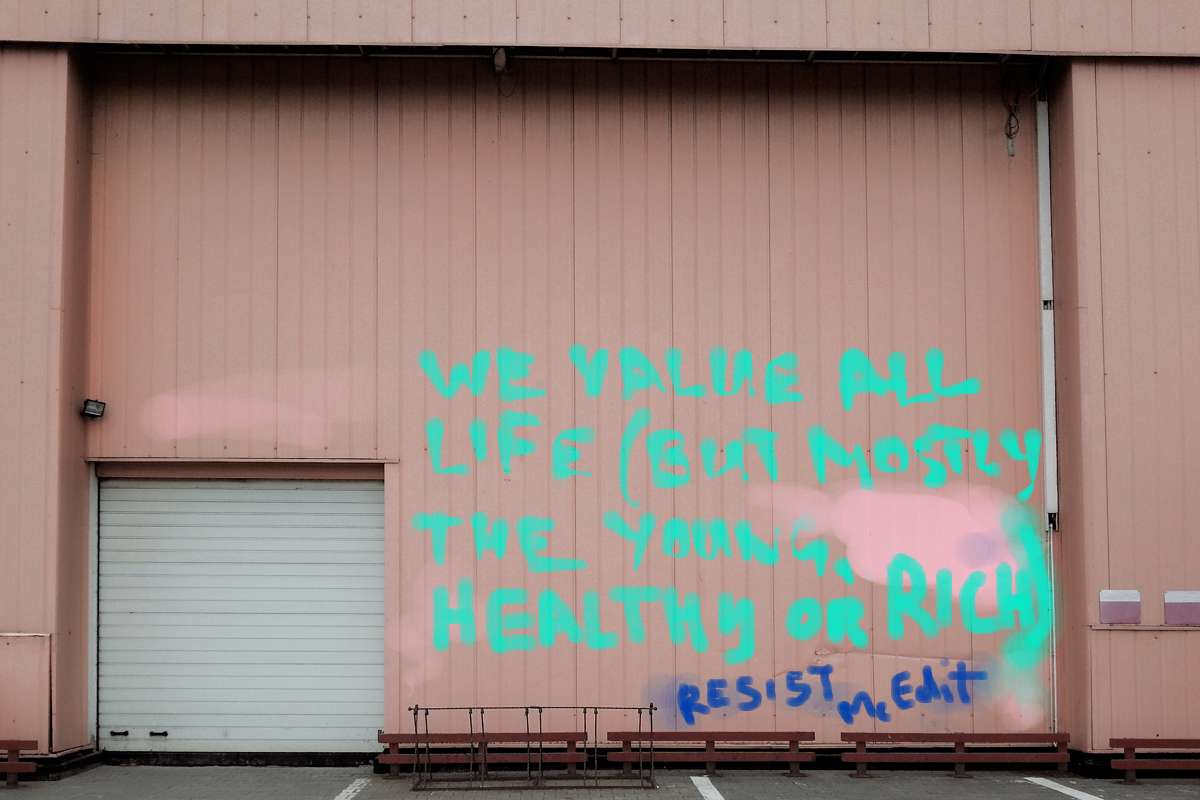 WE VALUE ALL
LIFE (BUT MOSTLY
THE YOUNG,
HEALTHY OR RICH)
RESIST McEdit